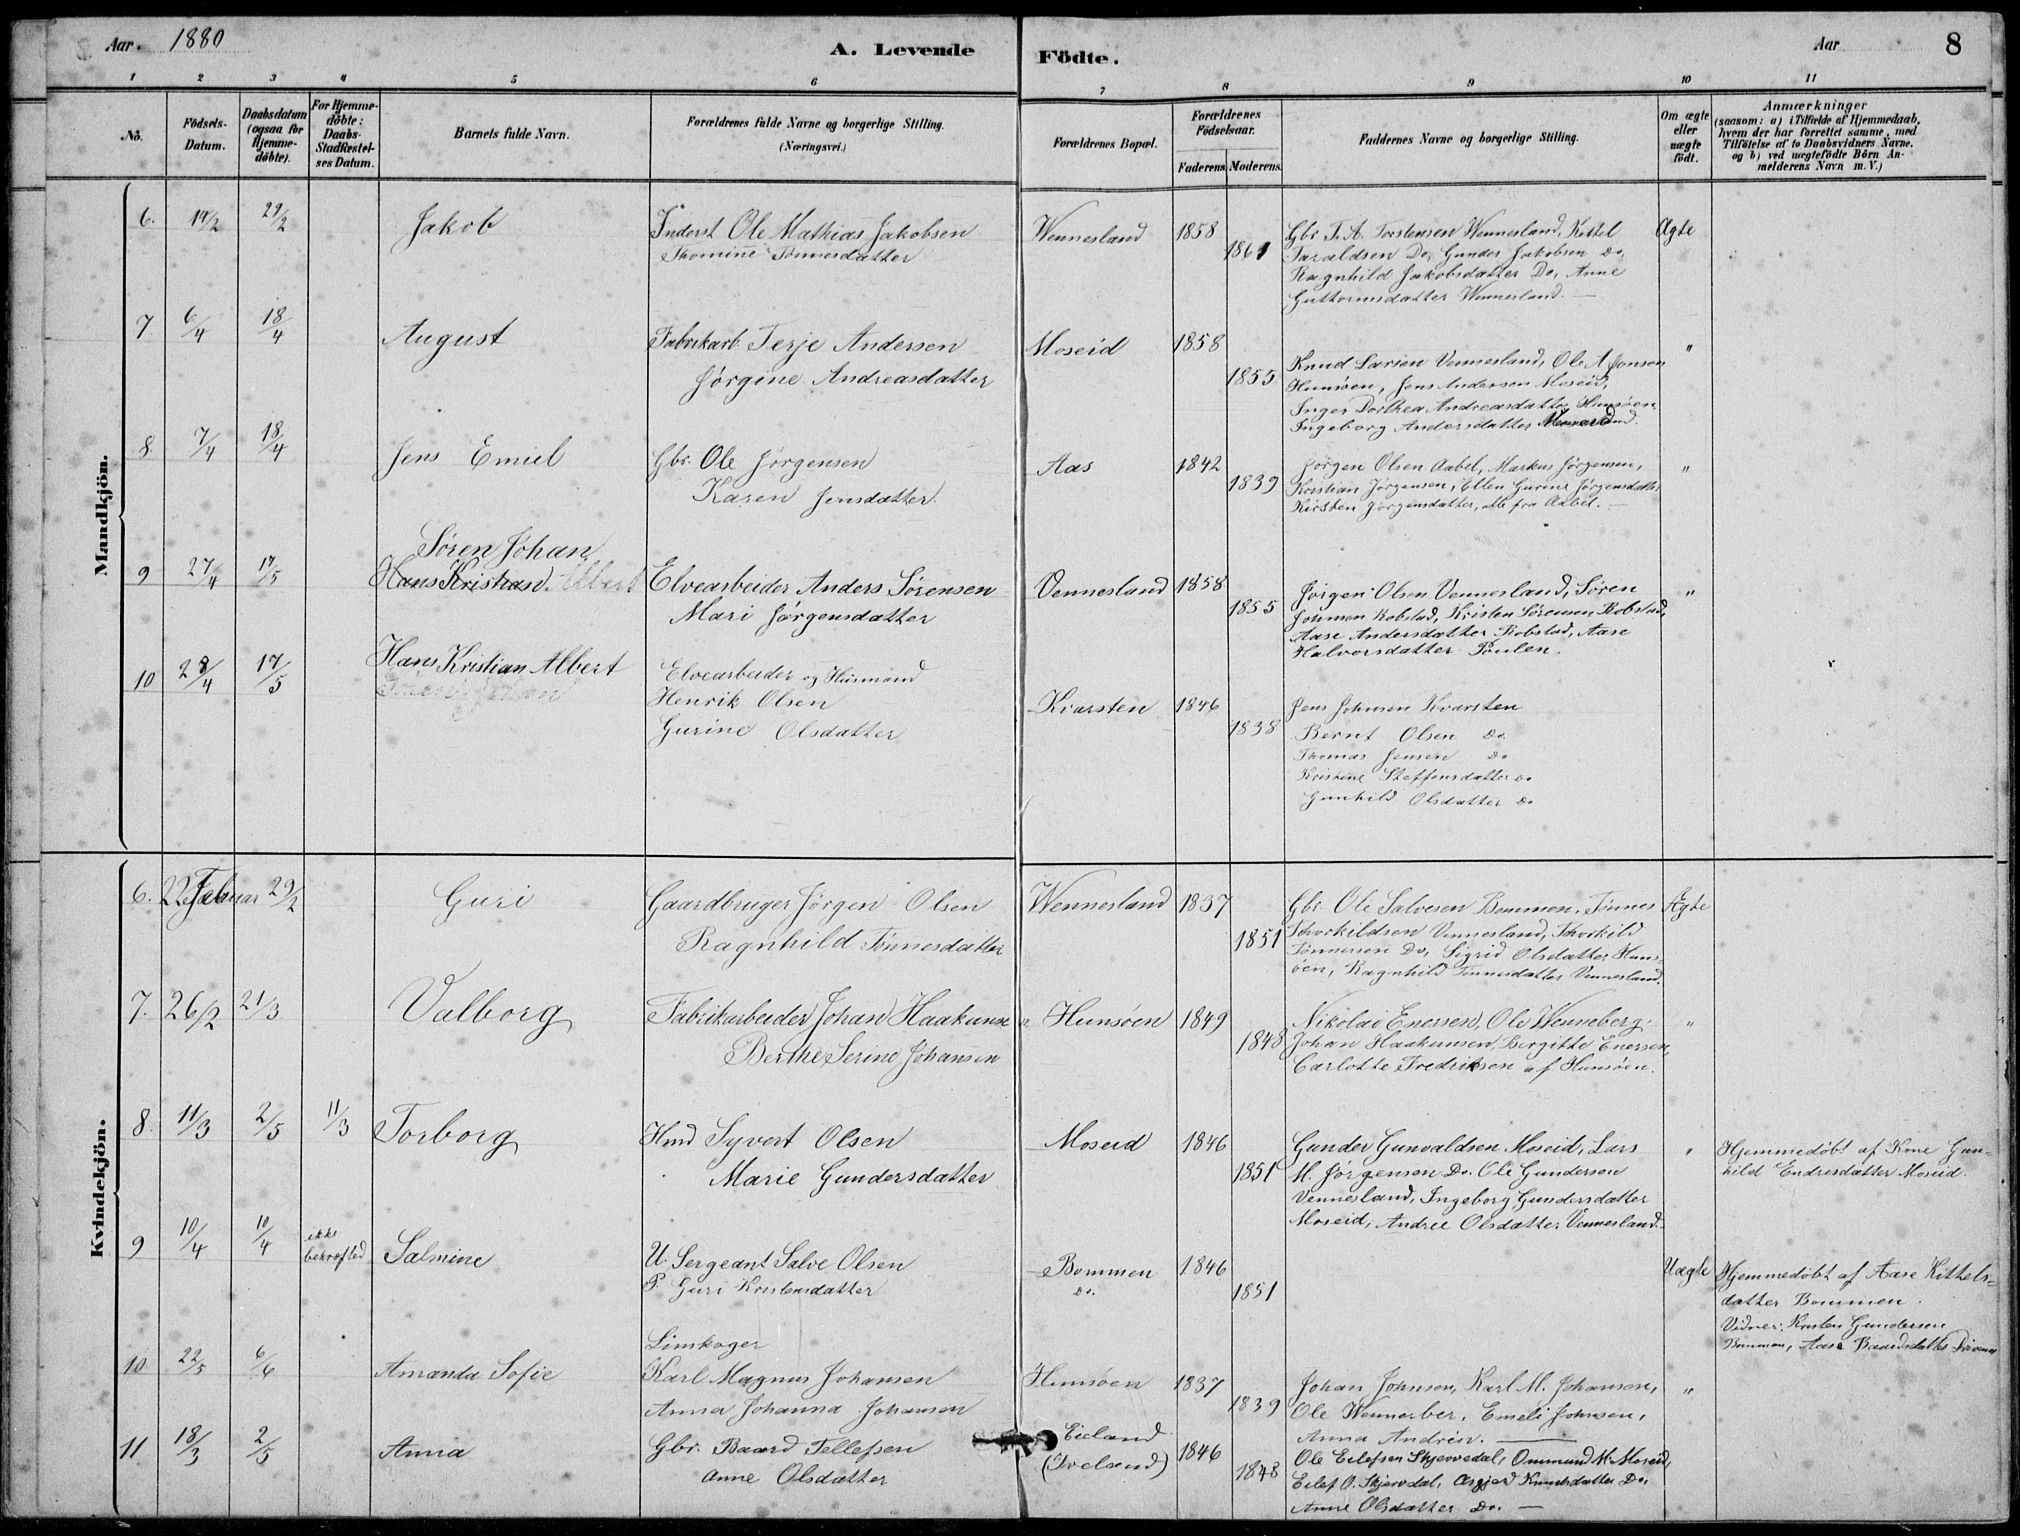 Aar. 1880
A. Levende
Födte.
Aar
8
1 2 3 4 5 6 7 8 9 10 11
No.
Födsels-
Datum.
Daabsdatum
(ogsaa for
Hjemme-
döbte).
For Hjemme-
döbte:
Daabs-
Stadfæstel-
ses Datum.
Barnets fulde Navn.
Forældrenes fulde Navne og borgerlige Stilling.
(Næringsvei.)
Forældrenes Bopæl.
Forældrenes
Födselsaar.
Faderens. Moderens.
Faddernes Navne og borgerlige Stilling.
Om ægte
eller
uægte
födt.
Anmærkninger
(saasom: a) i Tilfælde af Hjemmedaab,
hvem der har forrettet samme, med
Tilföielse af to Daabsvidners Navne,
og b) ved uægtefödte Börn An-
melderens Navn m. V.)
Mandkjön.
6. 14/2 29/2 Jakob
Inderst Ole Mathias Jakobsen
Thomine Tønnesdatter
Wennesland 1858
1861
Gbr. T. A. Torstensen Wennesland, Kittel
Taraldsen Do, Gunder Jakobsen Do,
Ragnhild Jakobsdatter Do, Anne
Guttormsdatter Wennesland. —
Ægte
7 6/4 18/4 August
Fabrikarb. Terje Andersen
Jørgine Andreasdatter
Moseid 1858
1855
Knud Larsen Vennesland, Ole A. Jonsen
Hunsøen, Jens Andersen Moseid,
Inger Dorthea Andreasdatter Hunsøen,
Ingeborg Andersdatter Vennesland.
"
8 7/4 18/4 Jens Emiel
Gbr. Ole Jørgensen
Karen Jensdatter.
Aas 1842
1839
Jørgen Olsen Aabel, Markus Jørgensen,
Kristian Jørgensen, Ellen Gurine Jørgensdatter,
Kirsten Jørgensdatter, alle fra Aabel. —
"
9 27/4 17/5 Søren Johan
Hans Kristian Albert
Elvearbeider Anders Sørensen
Mari Jørgensdatter
Vennesland 1858
1855
Jørgen Olsen Vennesland, Søren
Johnsen Robstad, Kristen Sørensen Robstad,
Aase Andersdatter Robstad, Aase
Halvorsdatter Foulen.
"
10 28/4 17/5 Hans Kristian Albert
Søren Johan
Elvearbeider og Husmand
Henrik Olsen
Gurine Olsdatter
Kvarsten 1846
1838
Jens Johnsen Kvarsten
Bernt Olsen Do.
Thomas Jensen Do
Kristine Steffensdatter Do
Gunhild Olsdatter Do
Kvindekjön.
6. 22 Februar 29/2 Guri
Gaardbruger Jørgen Olsen
Ragnhild Tønnesdatter
Wennesland 1837
1851
Gbr. Ole Salvesen Bommen, Tønnes
Thorkildsen Vennesland, Thorkild
Tønnesen Do, Sigrid Olsdatter Huns-
øen, Ragnhild Tønnesdatter Vennesland.
Ægte
7. 26/2 21/3 Valborg
Fabrikarbeider Johan Haakunsen
Berthe Serine Johansen
Hunsøen 1849
1848
Nikolai Enersen, Ole Wenneberg.
Johan Haakunsen, Birgitte Enersen,
Carlotte Fredriksen af Hunsøen.
"
8. 11/3 2/5 11/3 Torborg
Hmd Syvert Olsen
Marie Gundersdatter
Moseid 1846
1851
Gunder Gunvaldsen Moseid, Lars
M. Jørgensen Do. Ole Gundersen
Vennesland, Ingeborg Gundersdatter
Moseid, Andrée Olsdatter Vennesland.
"
Hjemmedøbt af Kone Gun-
hild Endresdatter Moseid.
9 10/4 10/4 ikke
bekræfted Salmine
U. Sergeant Salve Olsen
P. Guri Kristensdatter
Bommen
Do. 1846
1851
Uægte
Hjemmedøbt af Aase Kittels-
datter Bommen.
Vidner: Kristen Gundersen
Bommen, Aase Baardsdatter Drivenes
10 22/5 6/6 Amanda Sofie
Limkoger
Karl Magnus Johansen
Anna Johanna Johansen
Hunsøen 1837
1839
Johan Johnsen, Karl M. Johansen,
Ole Wennerber, Emeli Johnsen,
Anna Andrén. —
"
11 18/3 2/5 Anna
Gbr. Baard Tellefsen
Anne Olsdatter
Eieland
(Iveland) 1846
1848
Ole Eilefsen Skjervedal, Ommund M. Moseid,
Eilef O. Skjervdal, Asgjerd Knudsdatter Do,
Anne Olsdatter Do. —